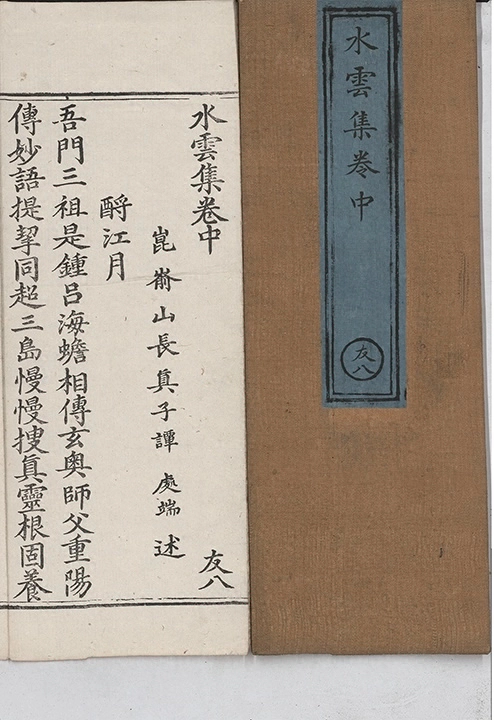 水雲集卷中
友八
水雲集卷中
友八
崑嵛山長真子譚處端述
酹江月
吾門三祖是鍾呂海蟾相傳玄奧師父重陽
傳妙語提挈同超三島慢慢搜真靈根固養